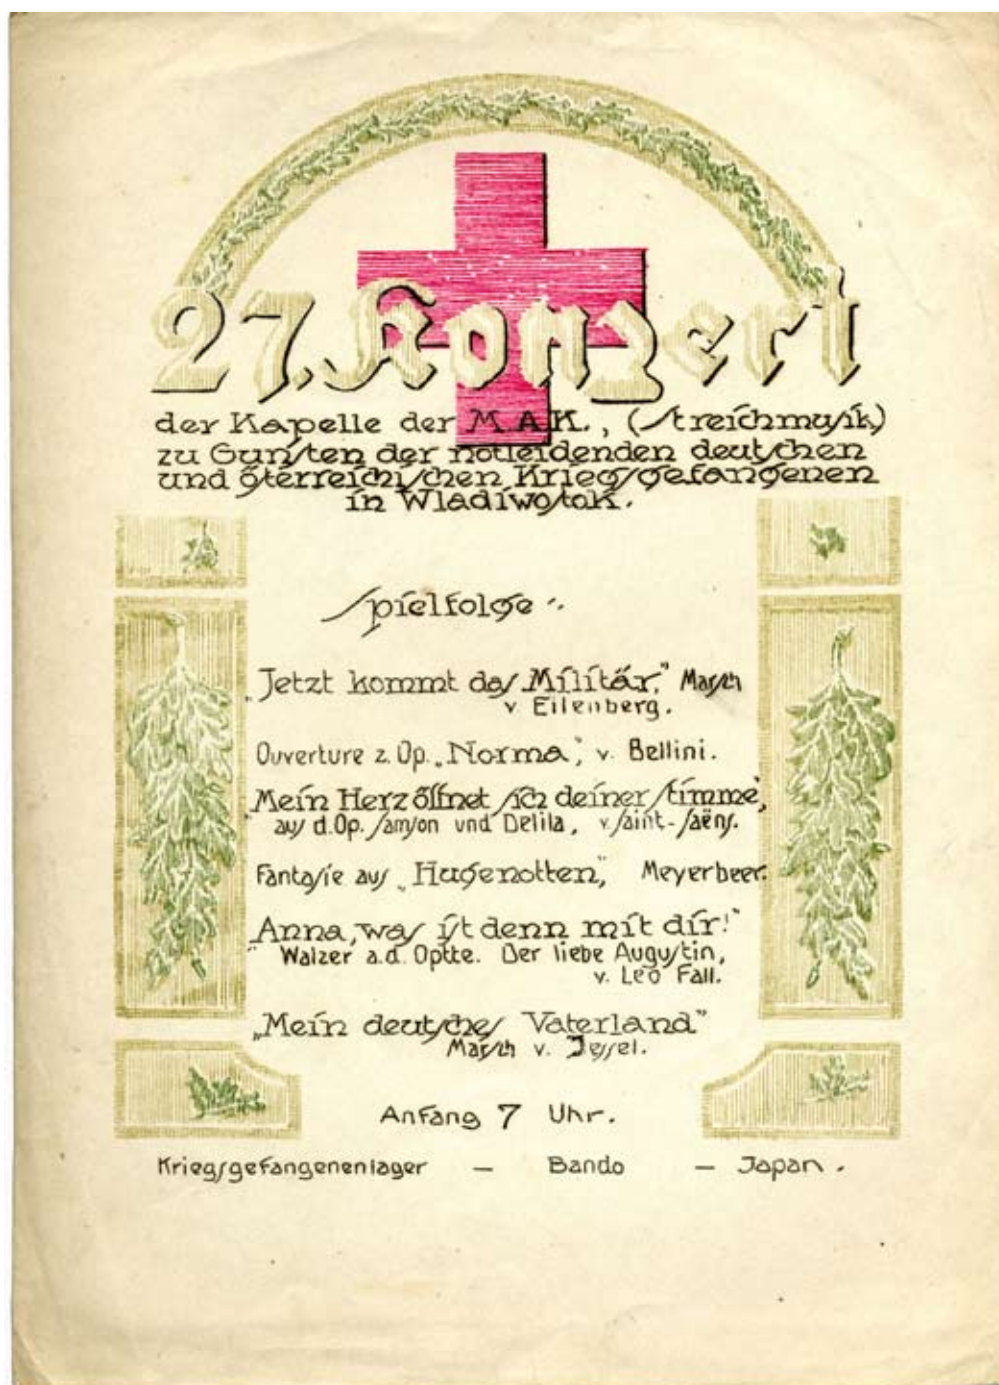 27. Konzert
der Kapelle der M.A.K., (Streichmusik)
zu Gunsten der notleidenden deutschen
und östereichischen Kriegsgefangenen
in Wladiwostok.
Spielfolge:
„Jetzt kommt das Militär," Marsch
v. Eilenberg.
Ouverture z. Op. „Norma", v. Bellini.
„Mein Herz öffnet sich deiner Stimme",
aus d. Op. Samson und Delila, v. Saint-Saëns.
Fantasie aus „Hugenotten," Meyerbeer.
„Anna, was ist denn mit dir!"
Walzer a.d. Optte. Der liebe Augustin,
v. Leo Fall.
„Mein deutsches Vaterland"
Marsch v. Jessel.
Anfang 7 Uhr.
Kriegsgefangenenlager — Bando — Japan.